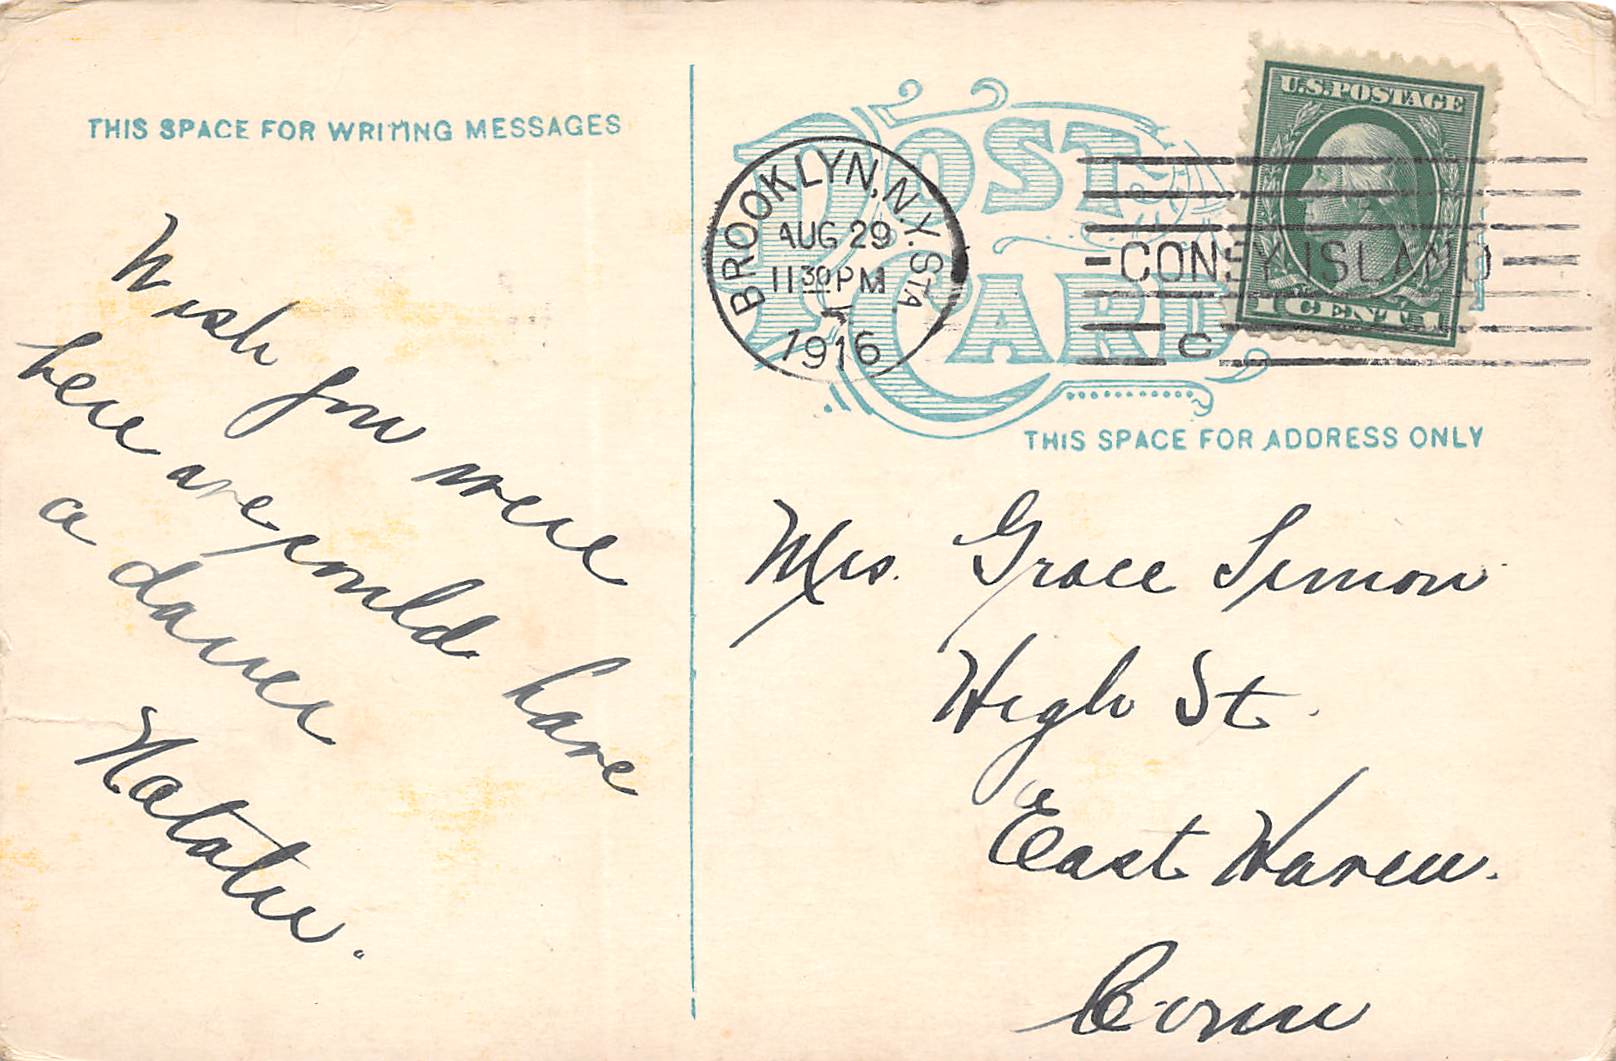 THIS SPACE FOR WRITING MESSAGES
Wish you were
here we could have
a dance
Natalie.
POST CARD
BROOKLYN, N.Y. STA.
AUG 29
11 30 PM
1916
CONEY ISLAND
C
U.S. POSTAGE
1 CENT 1
THIS SPACE FOR ADDRESS ONLY
Mrs. Grace Simon
High St.
East Haven.
Conn